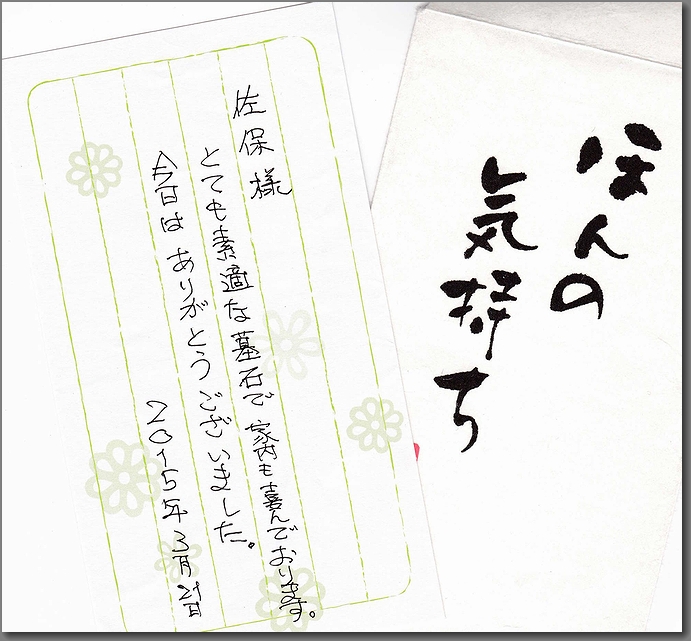 ほんの
気持ち
佐保様
とても素適な墓石で家内も喜んでおります。
今日はありがとうございました。
2015年3月